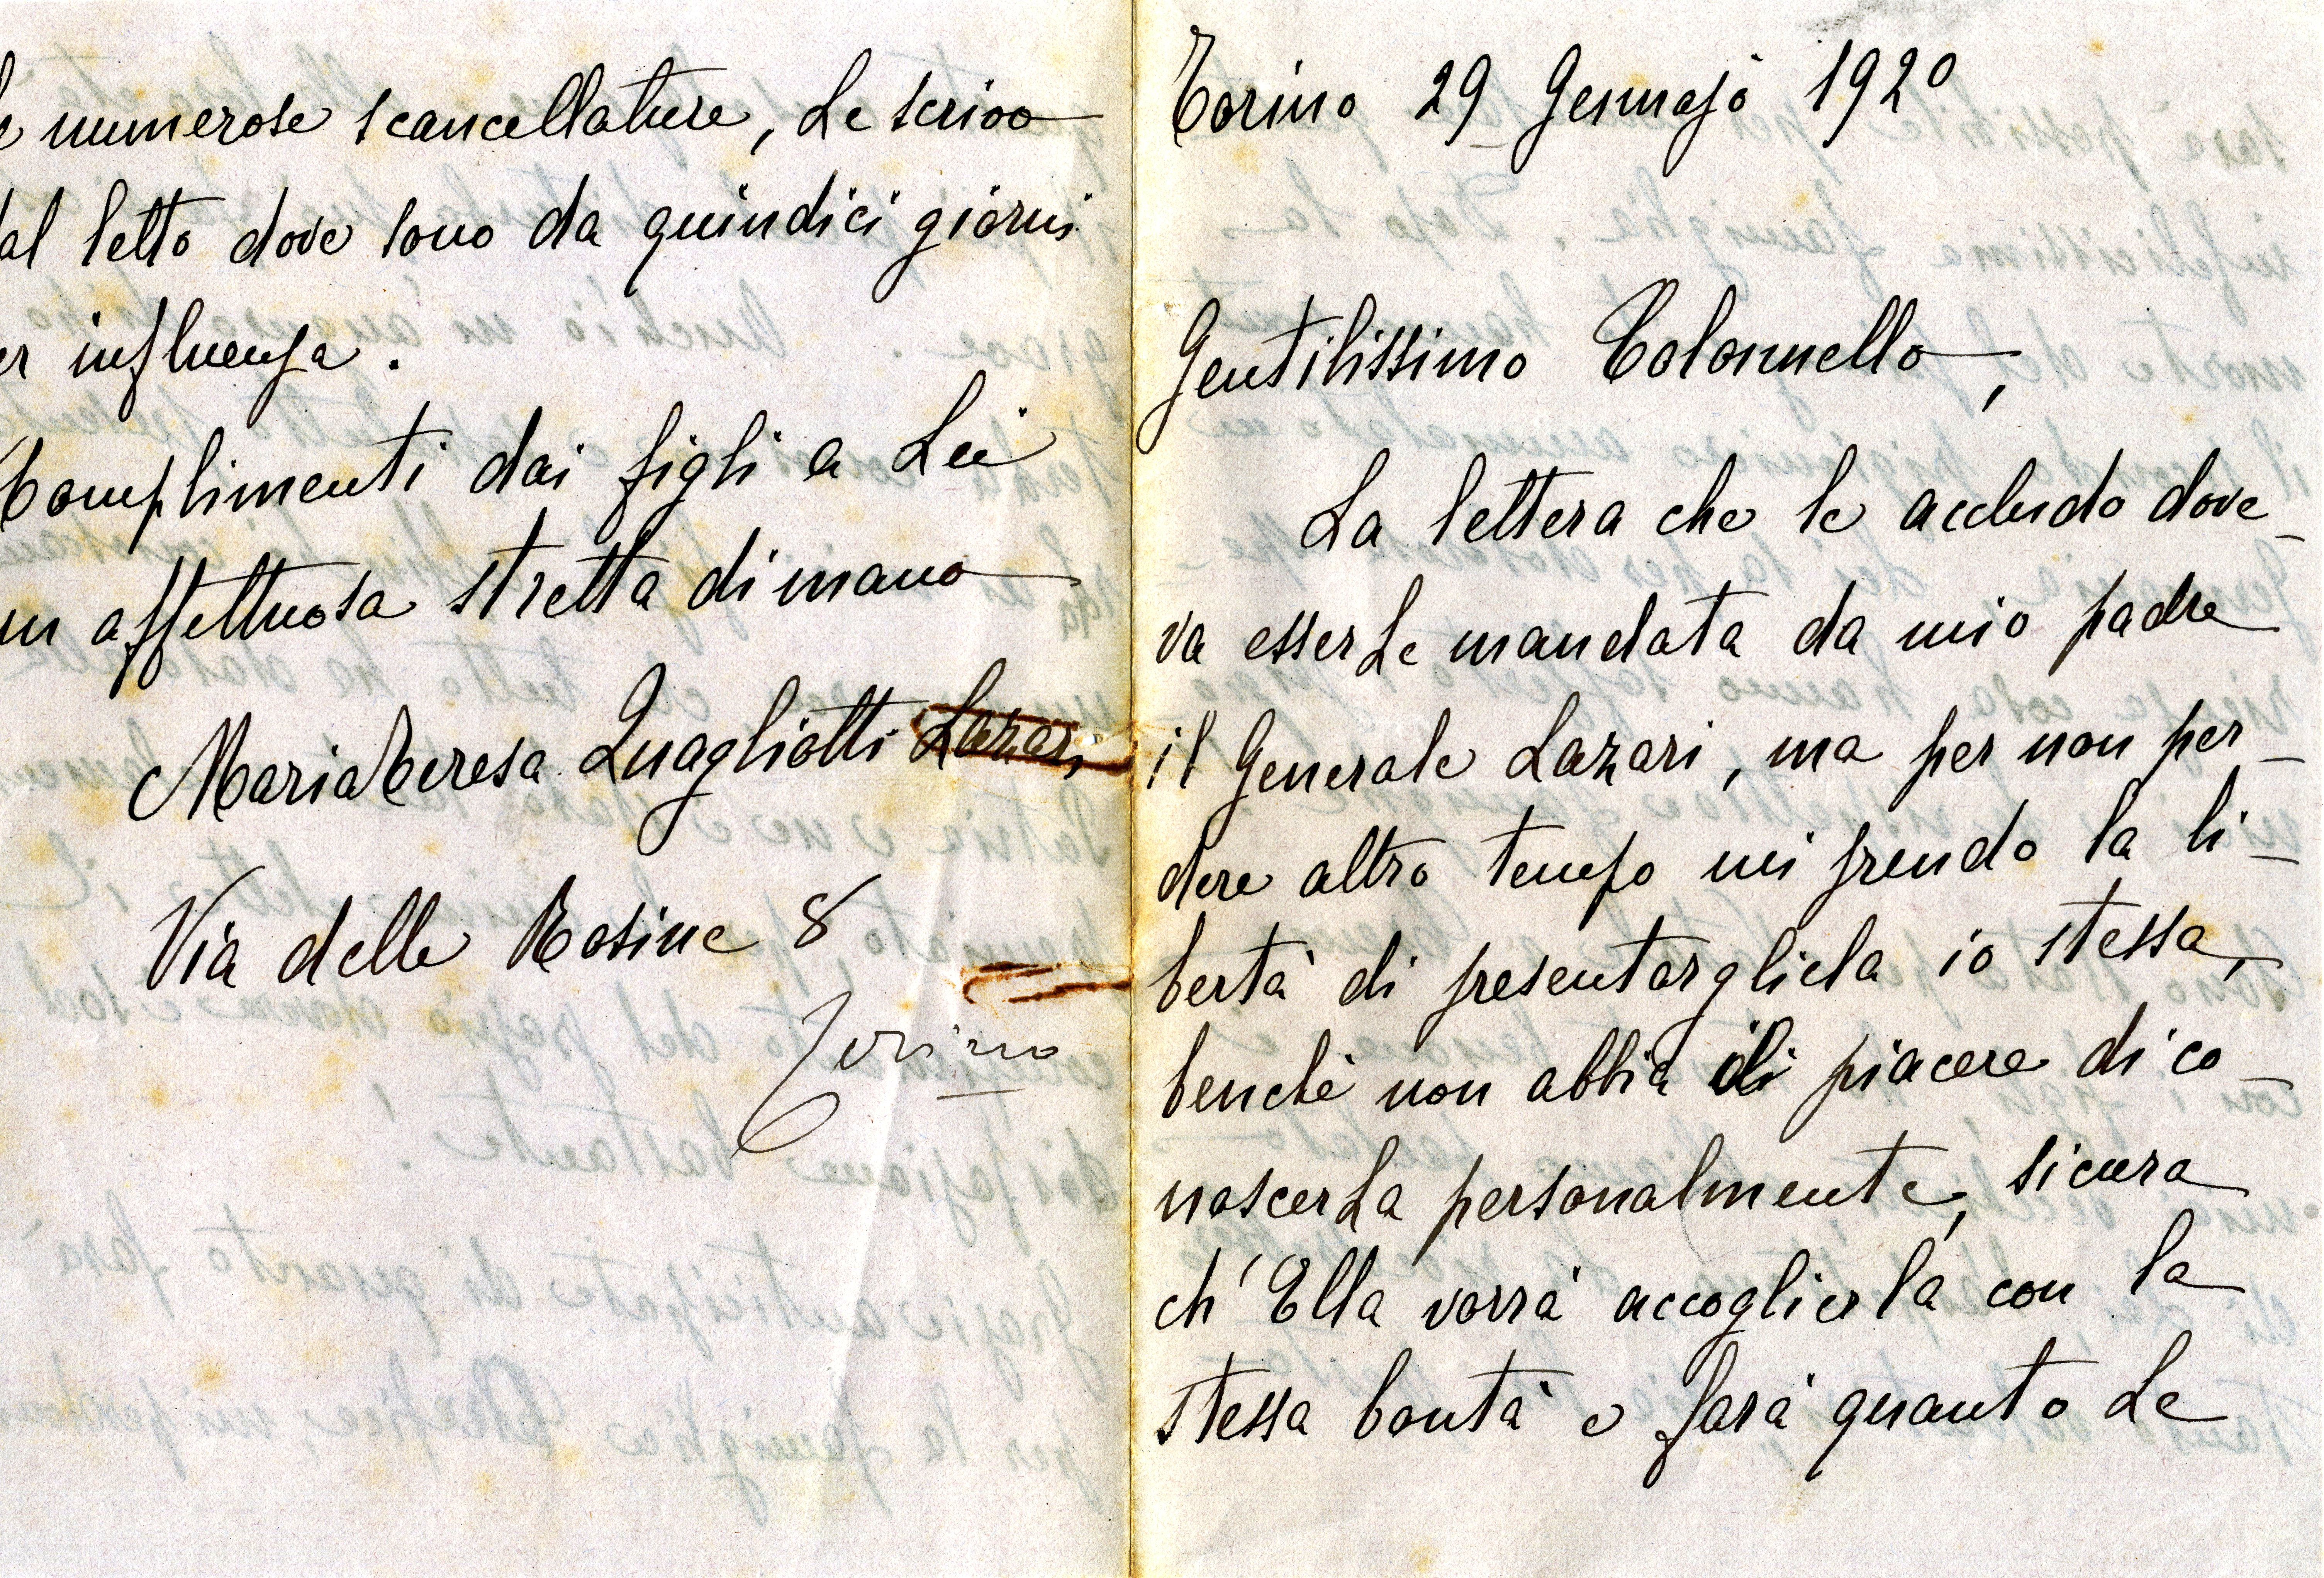 Torino 29 Gennajo 1920
Gentilissimo Colonnello,
La lettera che le accludo dove-
va esserLe mandata da mio padre
il Generale Lazari, ma per non per-
dere altro tempo mi prendo la li-
bertà di presentargliela io stessa,
benchè non abbia il piacere di co-
noscerLa personalmente, sicura
ch'Ella vorrà accoglierla con la
stessa bontà e farà quanto Le
numerose scancellature, Le scrivo
dal letto dove sono da quindici giorni
influenza.
Complimenti dai figli a Lei
affettuosa stretta di mano
Maria Teresa Quagliotti Lazari
Via delle Rosine 8
Torino